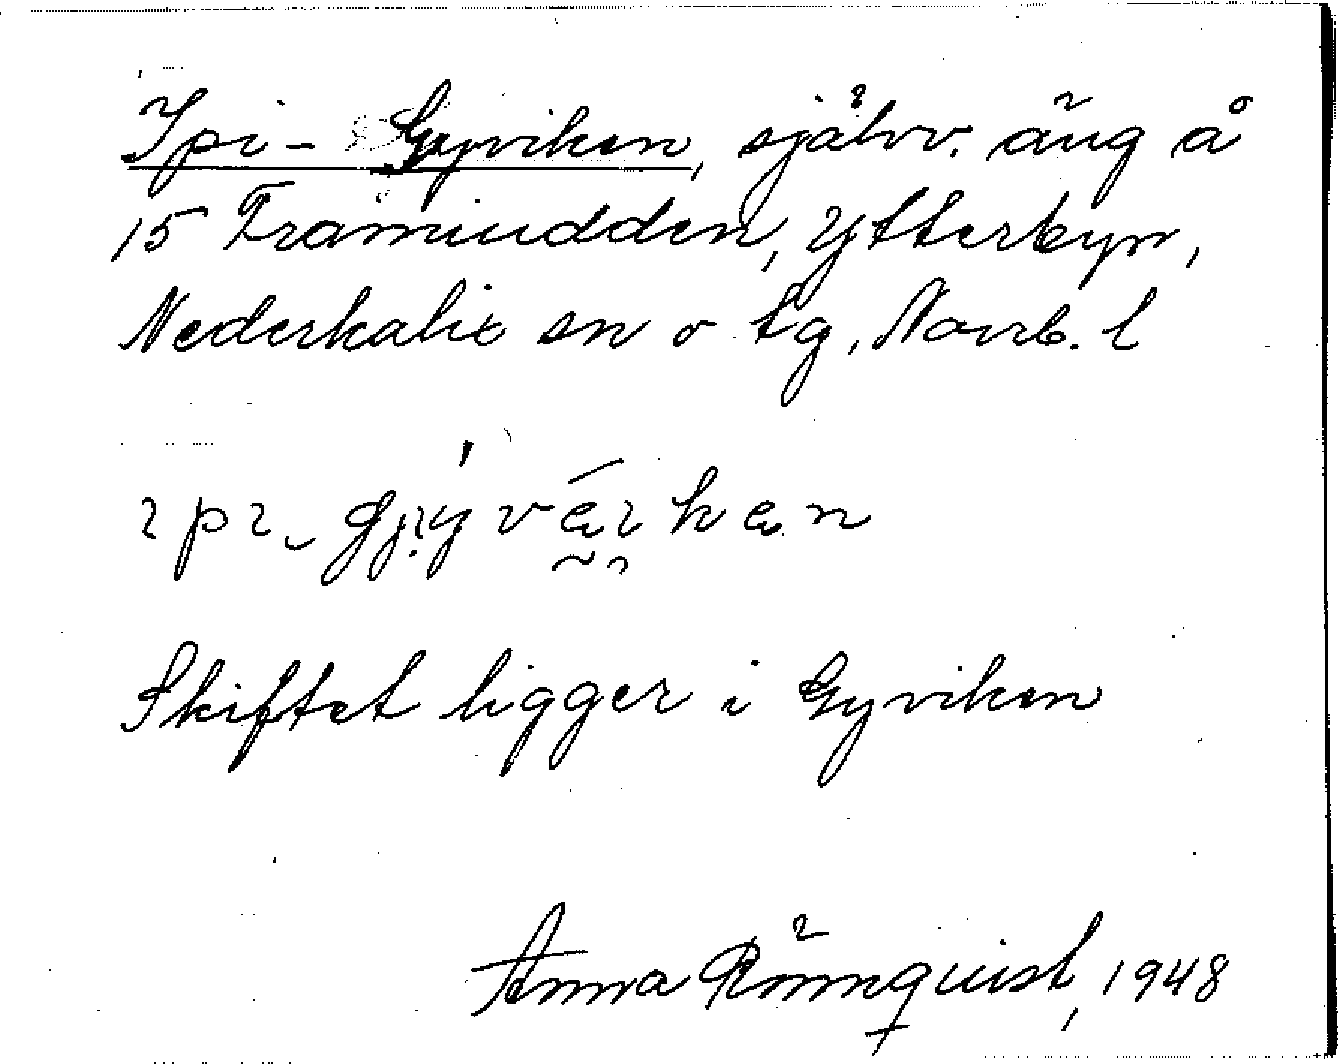 Ipi - Gyviken, självv. äng å
15 Framudden, Ytterbyn,
Nederkalix sn o tg, Norrb. l
Skiftet ligger i Gyviken
Anna Rönnquist, 1948